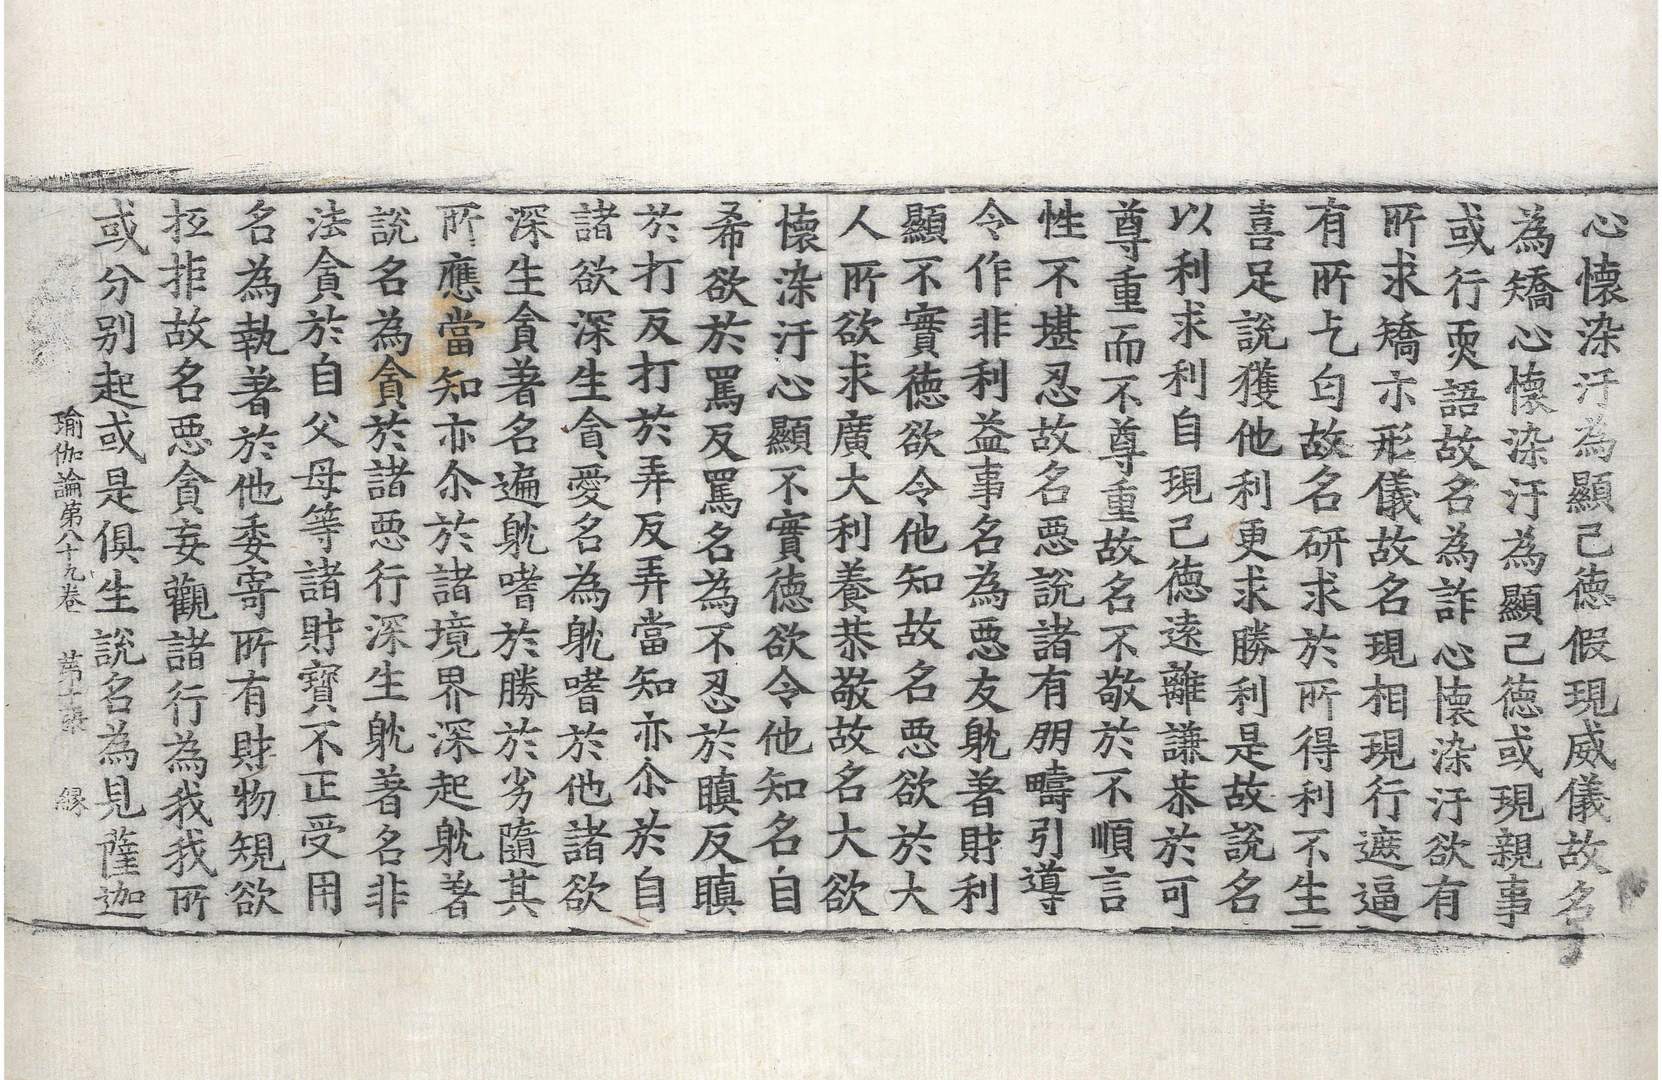 心懷染汙為顯己德假現威儀故名
為矯心懷染汙為顯己德或現親事
或行耎語故名為詐心懷染汙欲有
所求矯示形儀故名現相現行遮逼
有所乞匄故名研求於所得利不生
喜足說獲他利更求勝利是故說名
以利求利自現己德遠離謙恭於可
尊重而不尊重故名不敬於不順言
性不堪忍故名惡說諸有朋疇引導
令作非利益事名為惡友躭著財利
顯不實德欲令他知故名惡欲於大
人所欲求廣大利養恭敬故名大欲
懷染汙心顯不實德欲令他知名自
希欲於罵反罵名為不忍於瞋反瞋
於打反打於弄反弄當知亦尒於自
諸欲深生貪愛名為躭嗜於他諸欲
深生貪著名遍躭嗜於勝於劣隨其
所應當知亦尒於諸境界深起躭著
說名為貪於諸惡行深生躭著名非
法貪於自父母等諸財寶不正受用
名為執著於他委寄所有財物規欲
抂拒故名惡貪妄觀諸行為我我所
或分別起或是俱生說名為見薩迦
瑜伽論第八十九卷　第十張　緣